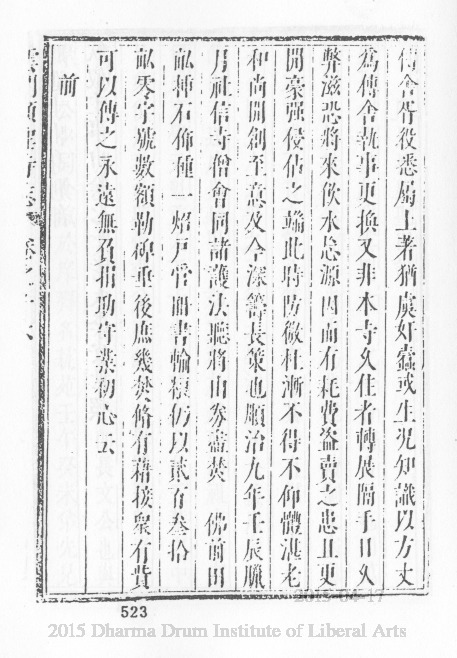 傳舍胥役悉屬土著猶虞奸蠹或生況知識以方丈
為傳舍執事更換又非本寺久住者轉展隔手日久
弊滋恐將來飲水忘源因而有耗費盜賣之患且更
開豪强侵佔之端此時防微杜漸不得不仰體湛老
和尚開創至意及今深籌長策也順治九年壬辰臘
月社信寺僧會同諸護法聽將山劵盡焚 佛前田
畝種石佈種一炤戶管冊書輸糧仍以貳百叁拾
畝零字號數額勒碑垂後庶幾焚脩有藉接衆有費
可以傳之永遠無負捐助守業初心云
前
雲門顯聖寺志 卷之十六
523
2015-06-17
2015 Dharma Drum Institute of Liberal Arts